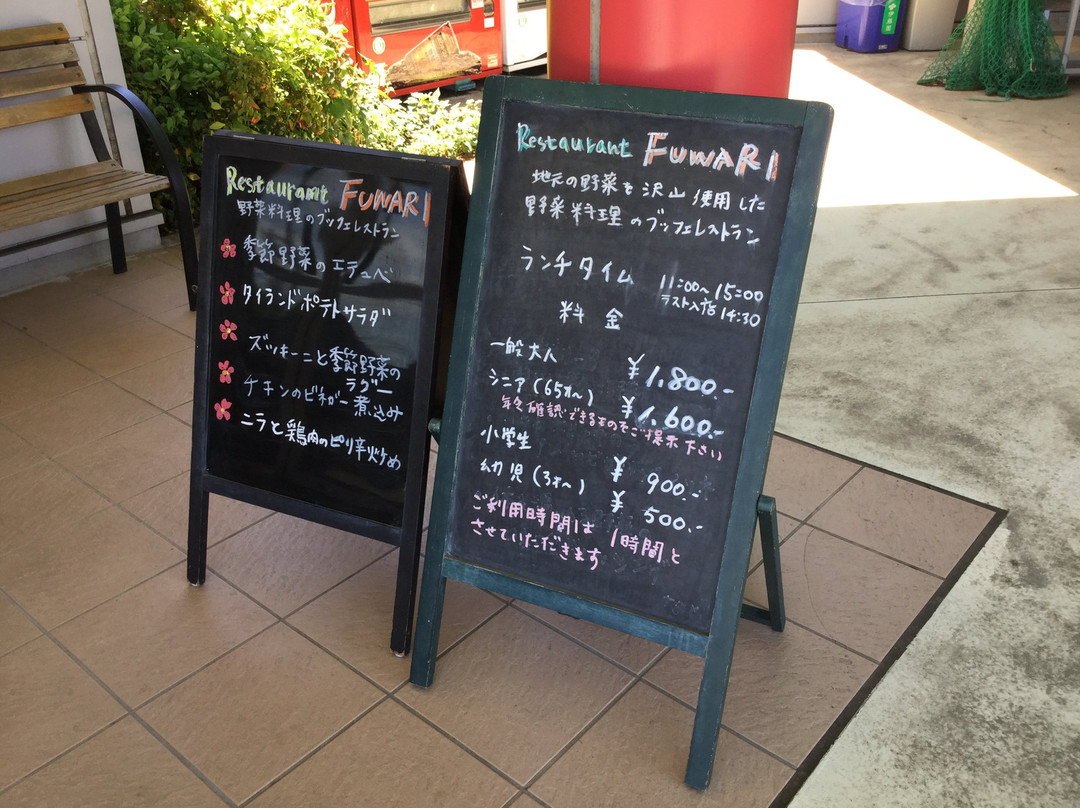 Restaurant FUWARI
野菜料理のブッフェレストラン
季節野菜のエチュベ
タイランドポテトサラダ
ズッキーニと季節野菜の
ラグー
チキンのビネガー煮込み
ニラと鶏肉のピリ辛炒め
Restaurant FUWARI
地元の野菜を沢山使用した
野菜料理のブッフェレストラン
ランチタイム 11:00~15:00
ラスト入店14:30
料金
一般大人 ¥1,800.-
シニア(65才~) ¥1,600.-
年令確認できるものをご提示下さい
小学生 ¥900.-
幼児(3才~) ¥500.-
ご利用時間は1時間と
させていただきます